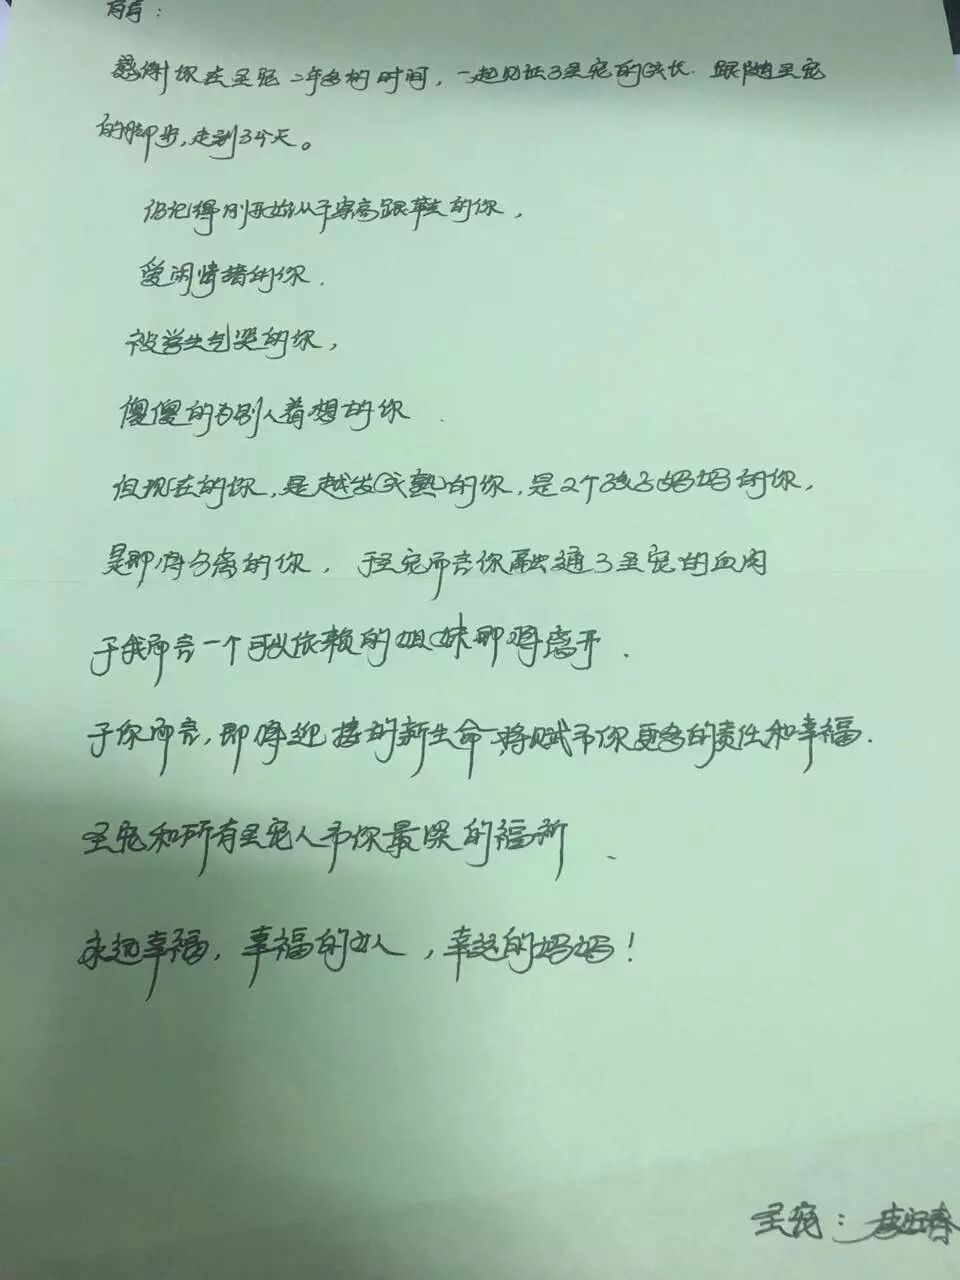 感谢你在圣宠二年多的时间，一起见证了圣宠的成长．跟随圣宠
的脚步，走到了今天。
仍记得刚开始从不穿高跟鞋的你，
爱闹情绪的你．
被学生气哭的你，
傻傻的为别人着想的你
但现在的你，是越发成熟的你，是2个孩子妈妈的你，
是即将分离的你，于圣宠而言你融通了圣宠的血肉
于我而言一个可以依赖的姐妹即将离开．
于你而言，即将迎接的新生命将赋予你更多的责任和幸福．
圣宠和所有圣宠人予你最深的福祈
永远幸福，幸福的女人，幸运的妈妈！
圣宠：